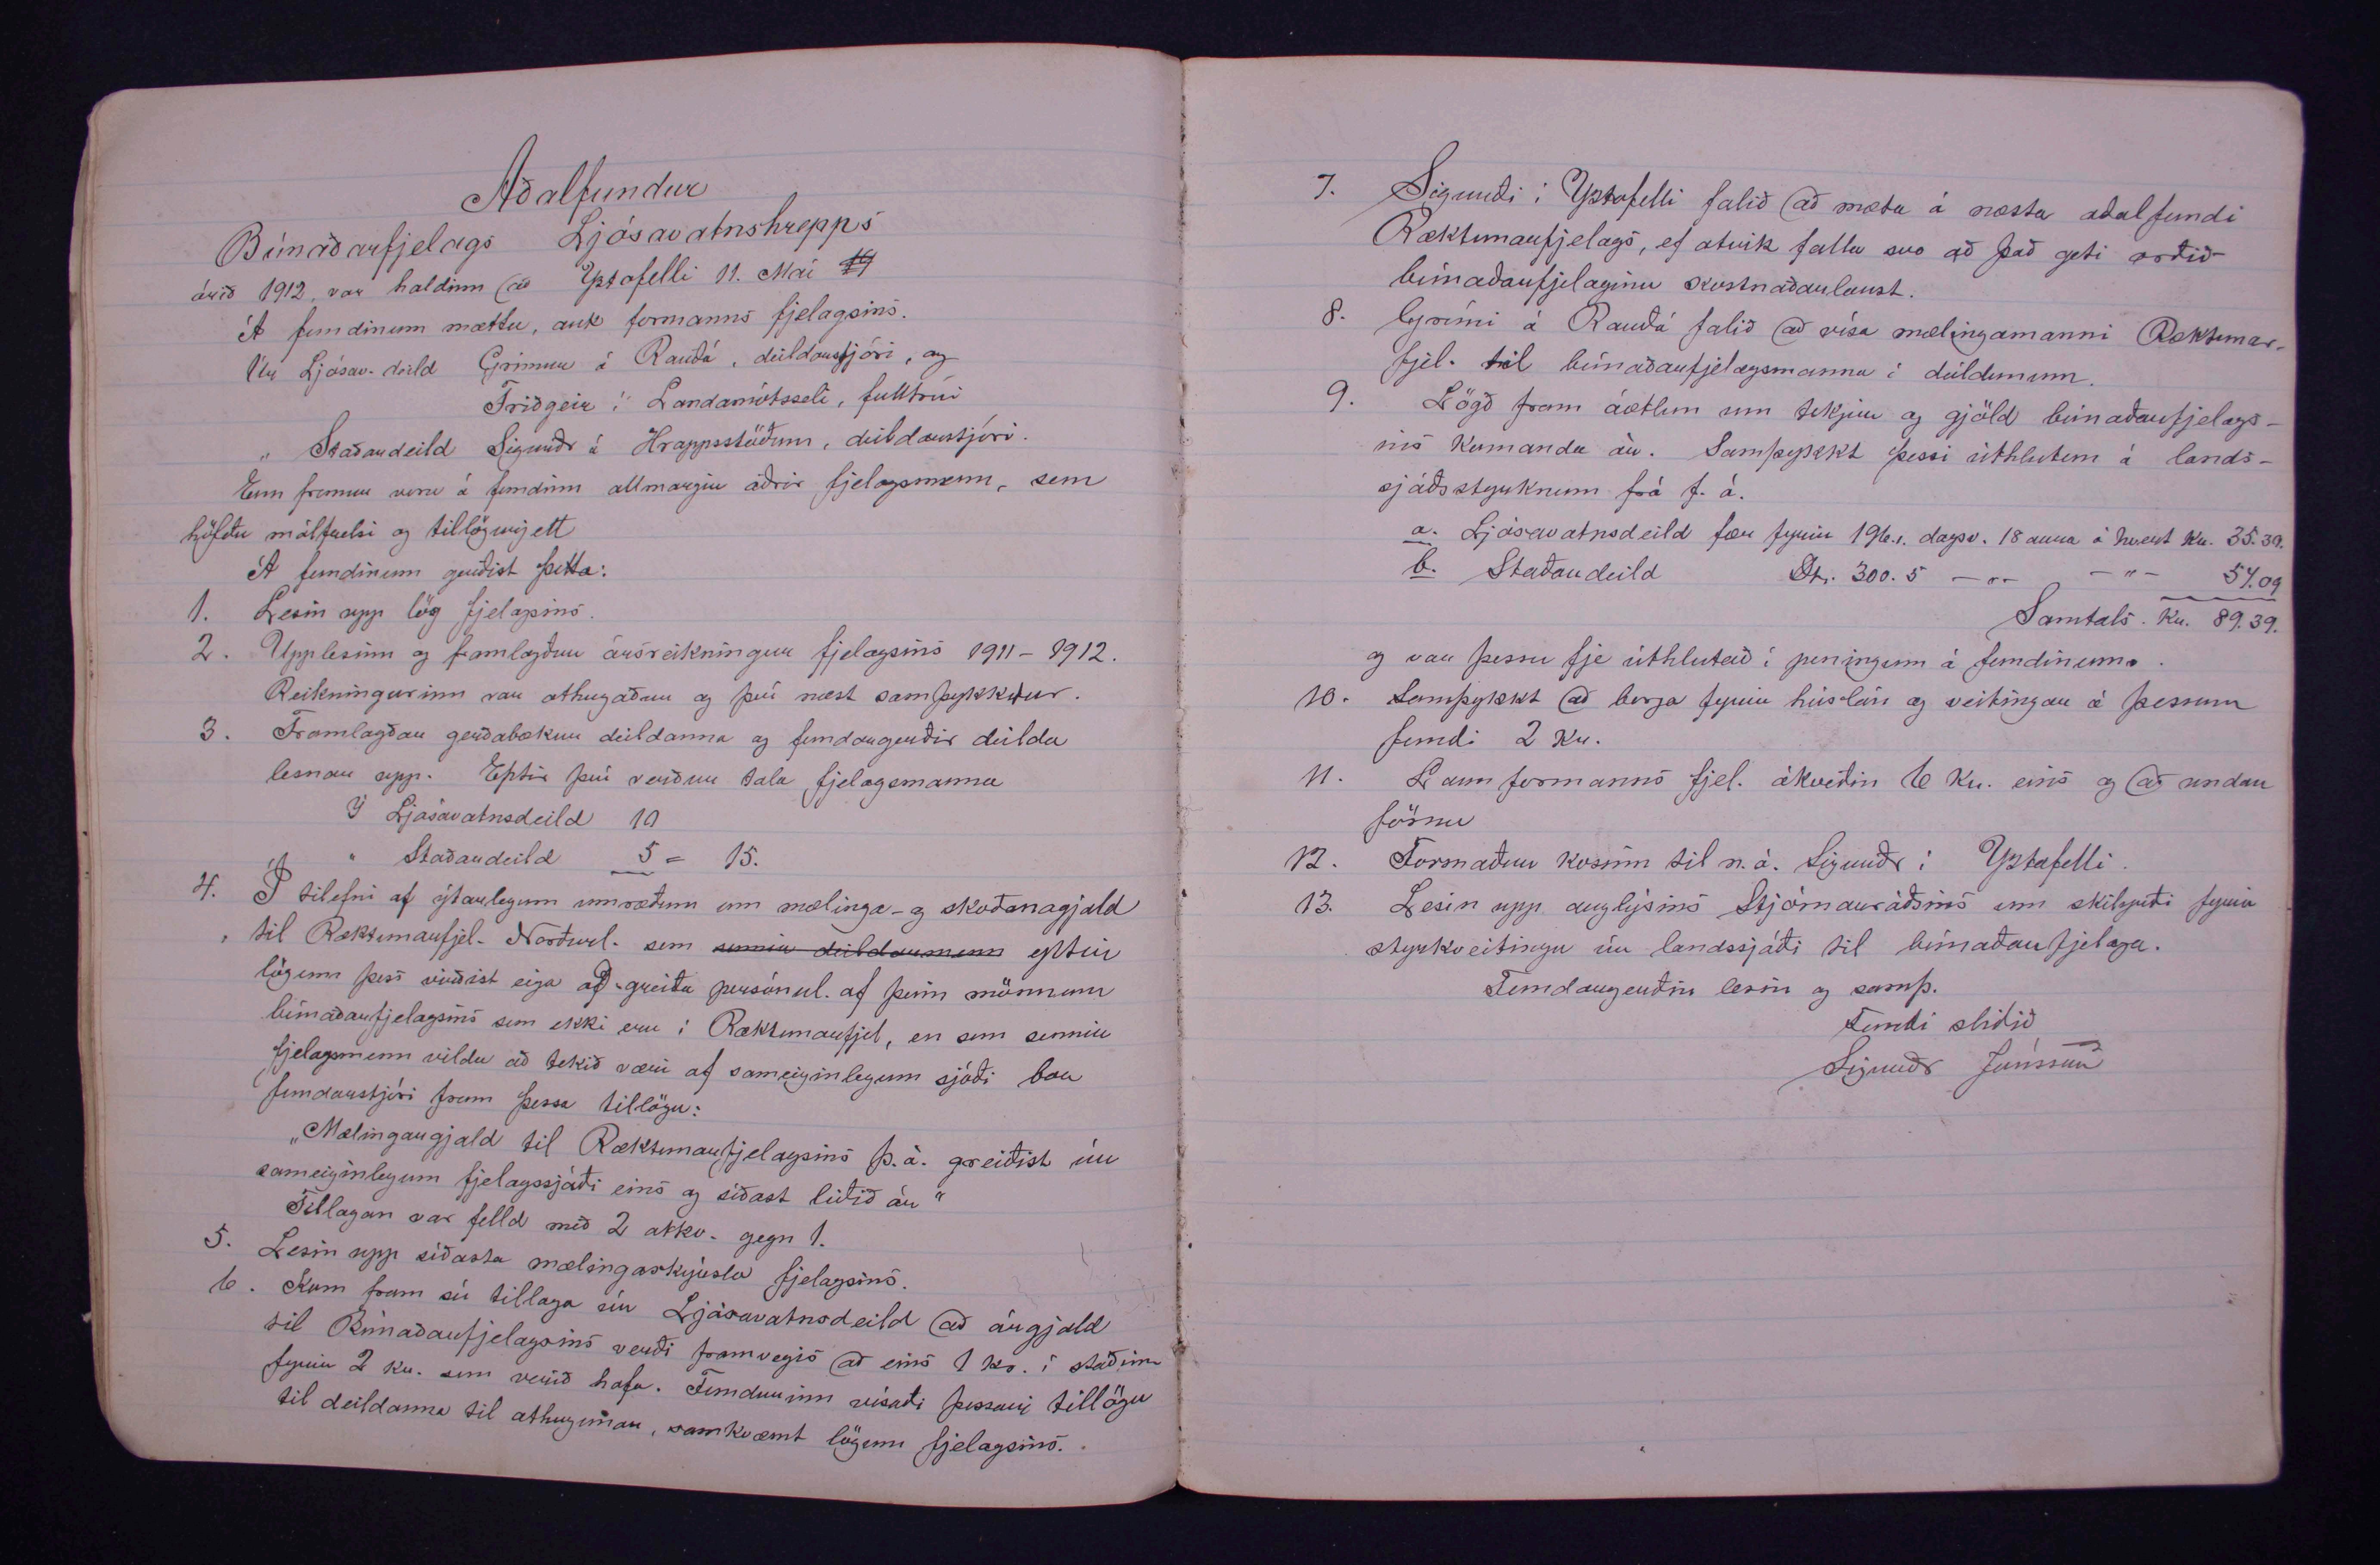 Aðalfundur
Búnaðarfjelags Ljósavatnshrepps
árið 1912, var haldinn að Yztafelli 11. Maí
Á fundinum mættu, auk formanns fjelagsins.
Úr Ljósav. deild Grímur á Rauðá, deildarstjóri, og
Friðgeir í Landamótsseli, fulltrúi
„ Staðardeild Sigurðr á Hrappsstöðum, deildarstjóri.
Enn fremur voru á fundinum allmargir aðrir fjelagsmenn, sem
höfðu málfrelsi og tillögurjett
Á fundinum gerðist þetta:
1. Lesin upp lög fjelagsins.
2. Upplesinn og framlagður ársreikningur fjelagsins 1911-1912.
Reikningurinn var athugaður og því næst samþykktur.
3. Framlagðar gerðabækur deildanna og fundargerðir deilda
lesnar upp. Eptir því verður tala fjelagsmanna
Í Ljósavatnsdeild 10
" Staðardeild 5 = 15.
4. Í tilefni af ýtarlegum umræðum um mælinga- og skoðanagjald
til Ræktunarfjel. Norðurl. sem sumir deildarmenn eptir
lögum þess virðist eiga að greiða persónul. af þeim mönnum
búnaðarfjelagsins sem ekki eru í Ræktunarfjel, en sem sumir
fjelagsmenn vildu að tekið væri af sameiginlegum sjóði bar
fundarstjóri fram þessa tillögu:
„Mælingargjald til Ræktunarfjelagsins þ.á. greiðist úr
sameiginlegum fjelagssjóði eins og síðast liðið ár"
Tillagan var felld með 2 atkv. gegn 1.
5. Lesin upp síðasta mælingaskýrsla fjelagsins.
6. Kom fram sú tillaga úr Ljósavatnsdeild að árgjald
til Búnaðarfjelagsins verði framvegis að eins 1 kr. í staðinn
fyrir 2 kr. sem verið hafa. Fundurinn vísaði þessari tillögu
til deildanna til athugunar, samkvæmt lögum fjelagsins.
7. Sigurði í Yztafelli falið að mæta á næsta aðalfundi
Ræktunarfjelags, ef atvik falla svo að það geti orðið
búnaðarfjelaginu kostnaðarlaust.
8. Grími á Rauðá falið að vísa mælingamanni Ræktunar-
fjel. til búnaðarfjelagsmanna í deildunum.
9. Lögð fram áætlun um tekjur og gjöld búnaðarfjelags-
ins komanda ár. Samþykkt þessi úthlutun á lands-
sjóðsstyrknum frá f. á.
a. Ljósavatnsdeild fær fyrir 196.1. dagsv. 18 aura á hvert Kr. 35.30.
b. Staðardeild Dt. 300.5 -"- -"- 54.09
Samtals. Kr. 89.39.
og var þessu fje úthlutað í peningum á fundinum.
10. Samþykkt að borga fyrir húslán og veitingar á þessum
fundi 2 Kr.
11. Laun formanns fjel. ákveðin 6 Kr. eins og að undan
förnu
12. Formaður kosinn til n.á. Sigurðr í Yztafelli.
13. Lesin upp auglýsing Stjórnarráðsins um skilyrði fyrir
styrkveitingu úr landssjóði til búnaðarfjelaga.
Fundargerðin lesin og samþ.
Fundi slitið
Sigurðr Jónsson